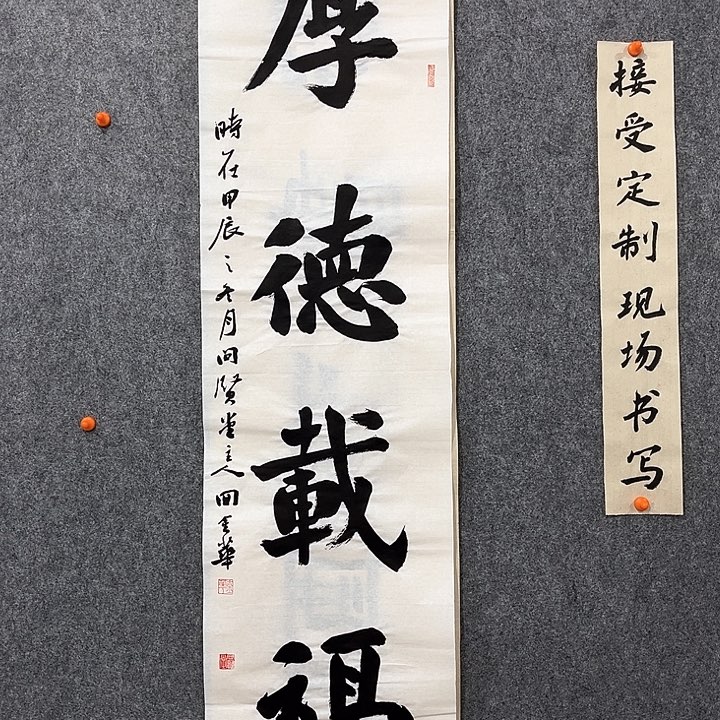 厚德載福
時在甲辰之冬月問賢堂主人田書華
接受定制现场书写